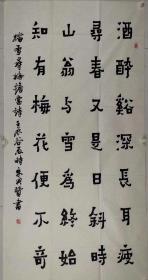 酒醉谿深長耳疲
尋春又是日斜時
山翁与雪為終始
知有梅花便不奇
踏雪尋梅 詩 壬辰谷雨時 朱 書